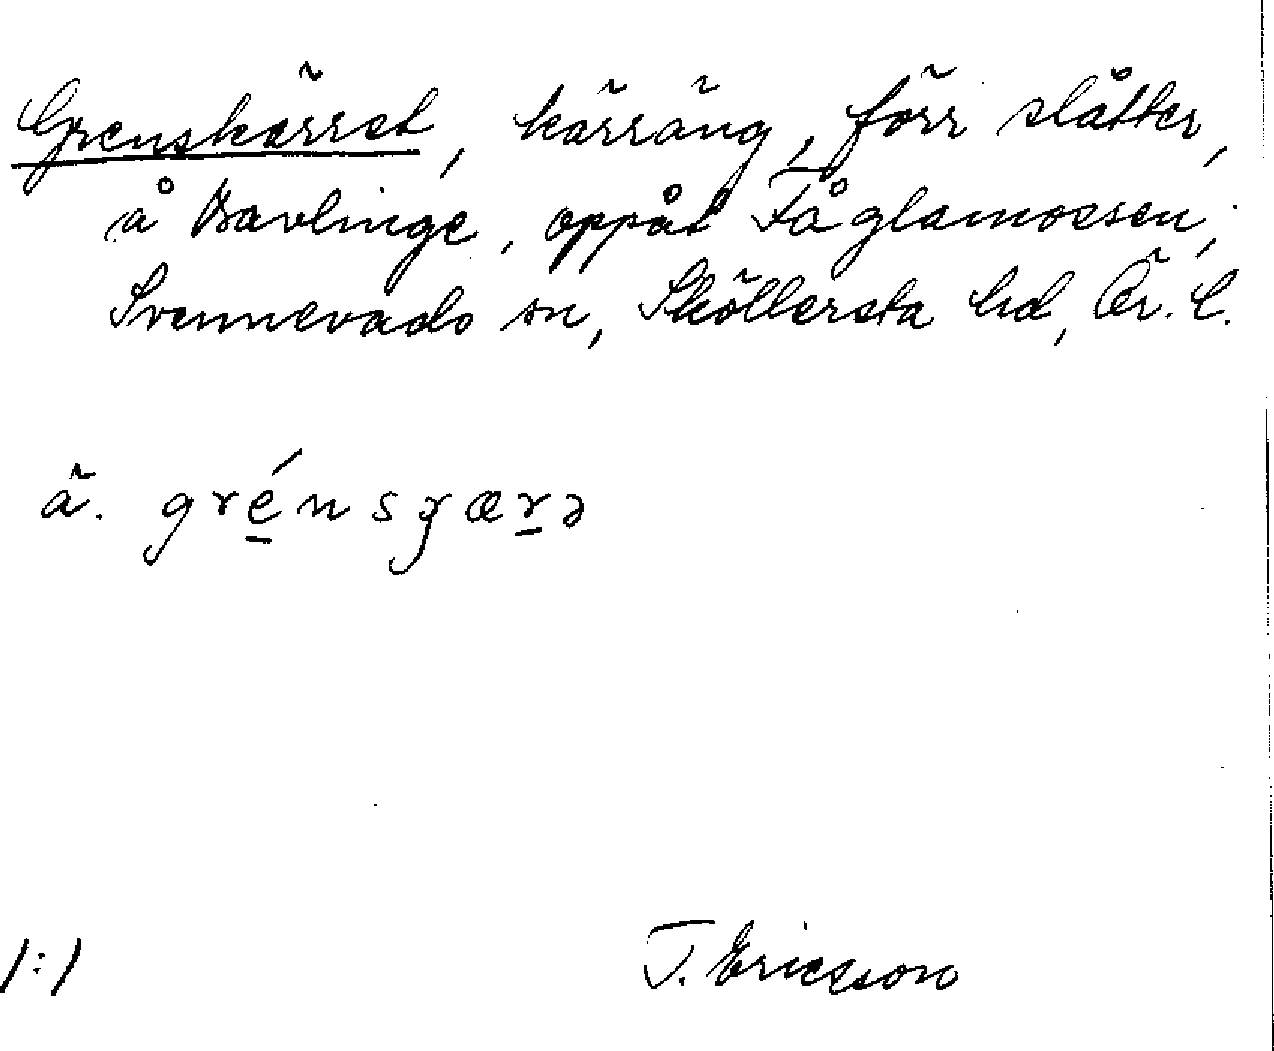 Grenskärret, kärräng, förr slåtter,
å Bavlinge, oppåt Fåglamossen,
Svennevads sn, Sköllersta hd, Ör. l.
ä. gré̱nsɟæṟə
/:/ T. Ericsson